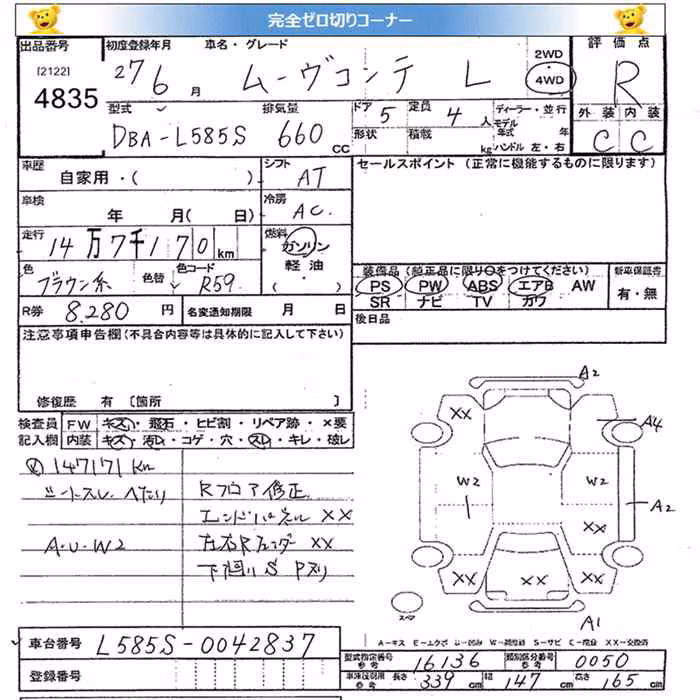 完全ゼロ切りコーナー
出品番号
[2122]
4835
初度登録年月
27 6 月
車名・グレード
ムーヴコンテ L
2WD
4WD
評価点
R
型式
DBA-L585S
排気量
660 cc
ドア 5
定員 4 人
形状
積載 kg
ディーラー・並行
モデル年式 年
ハンドル 左・右
外装 内装
C C
車歴
自家用・( )
シフト
AT
セールスポイント (正常に機能するものに限ります)
車検
年 月( 日)
冷房
AC.
走行
14万7千170km
燃料
ガソリン
軽油
( ・ )
色
ブラウン系
色替
色コード
R59
装備品 (純正品に限り○をつけてください)
PS PW ABS エアB AW
SR ナビ TV カワ
新車保証書
有・無
R券 8.280 円
名変通知期限 月 日
後日品
注意事項申告欄(不具合内容等は具体的に記入して下さい)
修復歴 有 [箇所 ]
検査員
記入欄
FW キズ・飛石・ヒビ割・リペア跡・×要
内装 キズ・汚れ・コゲ・穴・スレ・キレ・破レ
147171 km
シートスレ へたり
A・U・W2
Rフロア修正
エンドパネル XX
左右Rフェンダー XX
下廻り S P又リ
A2
XX
A4
W2
W2
A2
XX
XX
XX
XX
A1
スペア
A－キズ E－エクボ U－凹み W－補修跡 S－サビ C－腐食 XX－交換済
車台番号 L585S-0042837
登録番号
型式指定番号
参考
16136
類別区分番号
参考
0050
車検証明用
参考
長さ 339 cm 幅 147 cm 高さ 165 cm